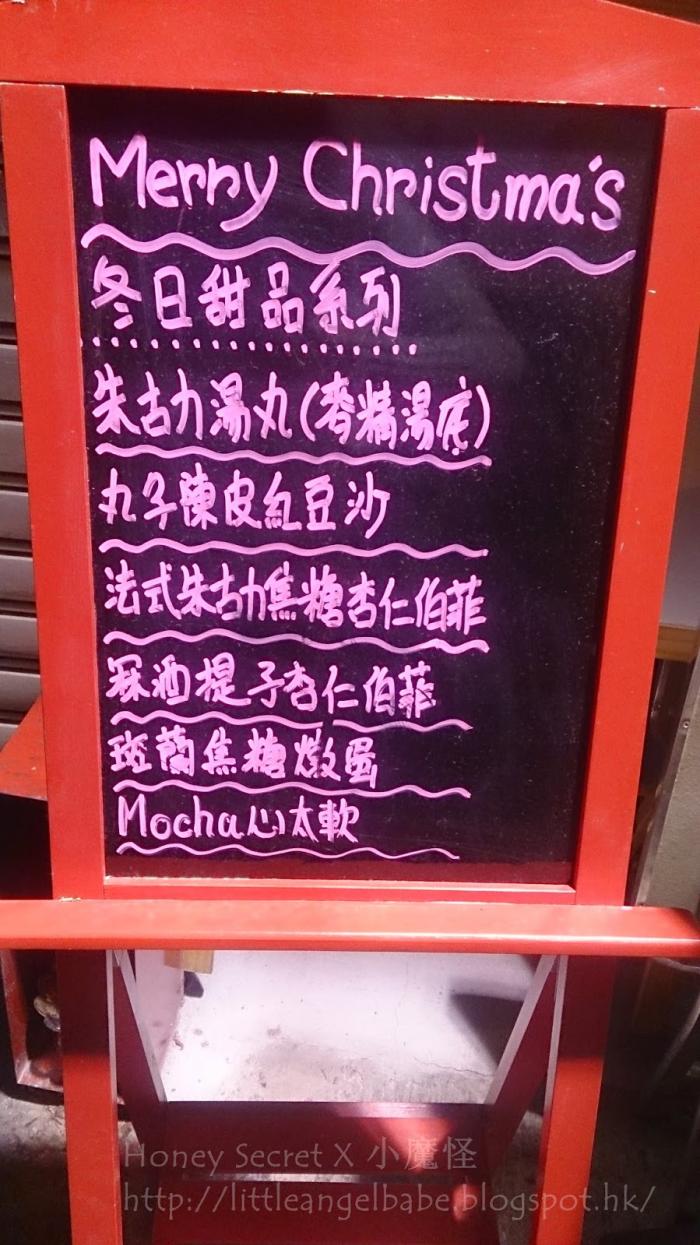 Merry Christma's
冬日甜品系列
朱古力湯丸(麥精湯底)
丸子陳皮紅豆沙
法式朱古力焦糖杏仁伯菲
冧酒提子杏仁伯菲
斑蘭焦糖燉蛋
Mocha心太軟
Honey Secret X 小魔怪
http://littleangelbabe.blogspot.hk/